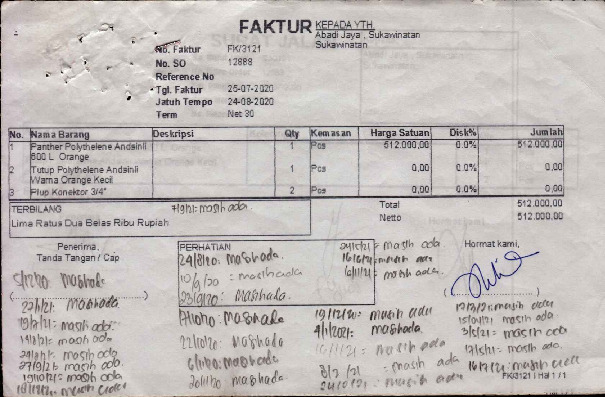 FAKTUR
KEPADA YTH,
Abadi Jaya , Sukawinatan
Sukawinatan
No. Faktur FK/3121
No. SO 12888
Reference No
Tgl. Faktur 25-07-2020
Jatuh Tempo 24-08-2020
Term Net 30
No. Nama Barang Deskripsi Qty Kemasan Harga Satuan Disk% Jumlah
1 Panther Polythelene Andainli 1 Pcs 512.000,00 0.0% 512.000,00
600 L Orange
2 Tutup Polythelene Andainli 1 Pcs 0,00 0.0% 0,00
Warna Orange Kecil
3 Plup Konektor 3/4" 2 Pcs 0,00 0.0% 0,00
TERBILANG 7/9/21: masih ada.
Lima Ratus Dua Belas Ribu Rupiah
Total 512.000,00
Netto 512.000,00
Penerima,
Tanda Tangan / Cap
PERHATIAN
24/8/20: masihada
10/9/20: masihada
23/9/20: masihada.
masih ada
masih ada
16/11/21: masih ada.
Hormat kami,
masihada
22/1/21: masihada.
masih ada
masih ada
masih ada
27/9/21: masih ada
19/10/21: masih ada
masih ada
7/10/20: masihada
22/10/20: masihada
masihada
masihada
19/12/20: masih ada
4/1/2021: masihada.
masih ada
masih ada
masih ada
masih ada
15/04/21: masih ada
3/5/21: masih ada
17/5/21: masih ada.
masih ada
FK/3121 | Hal 1 / 1